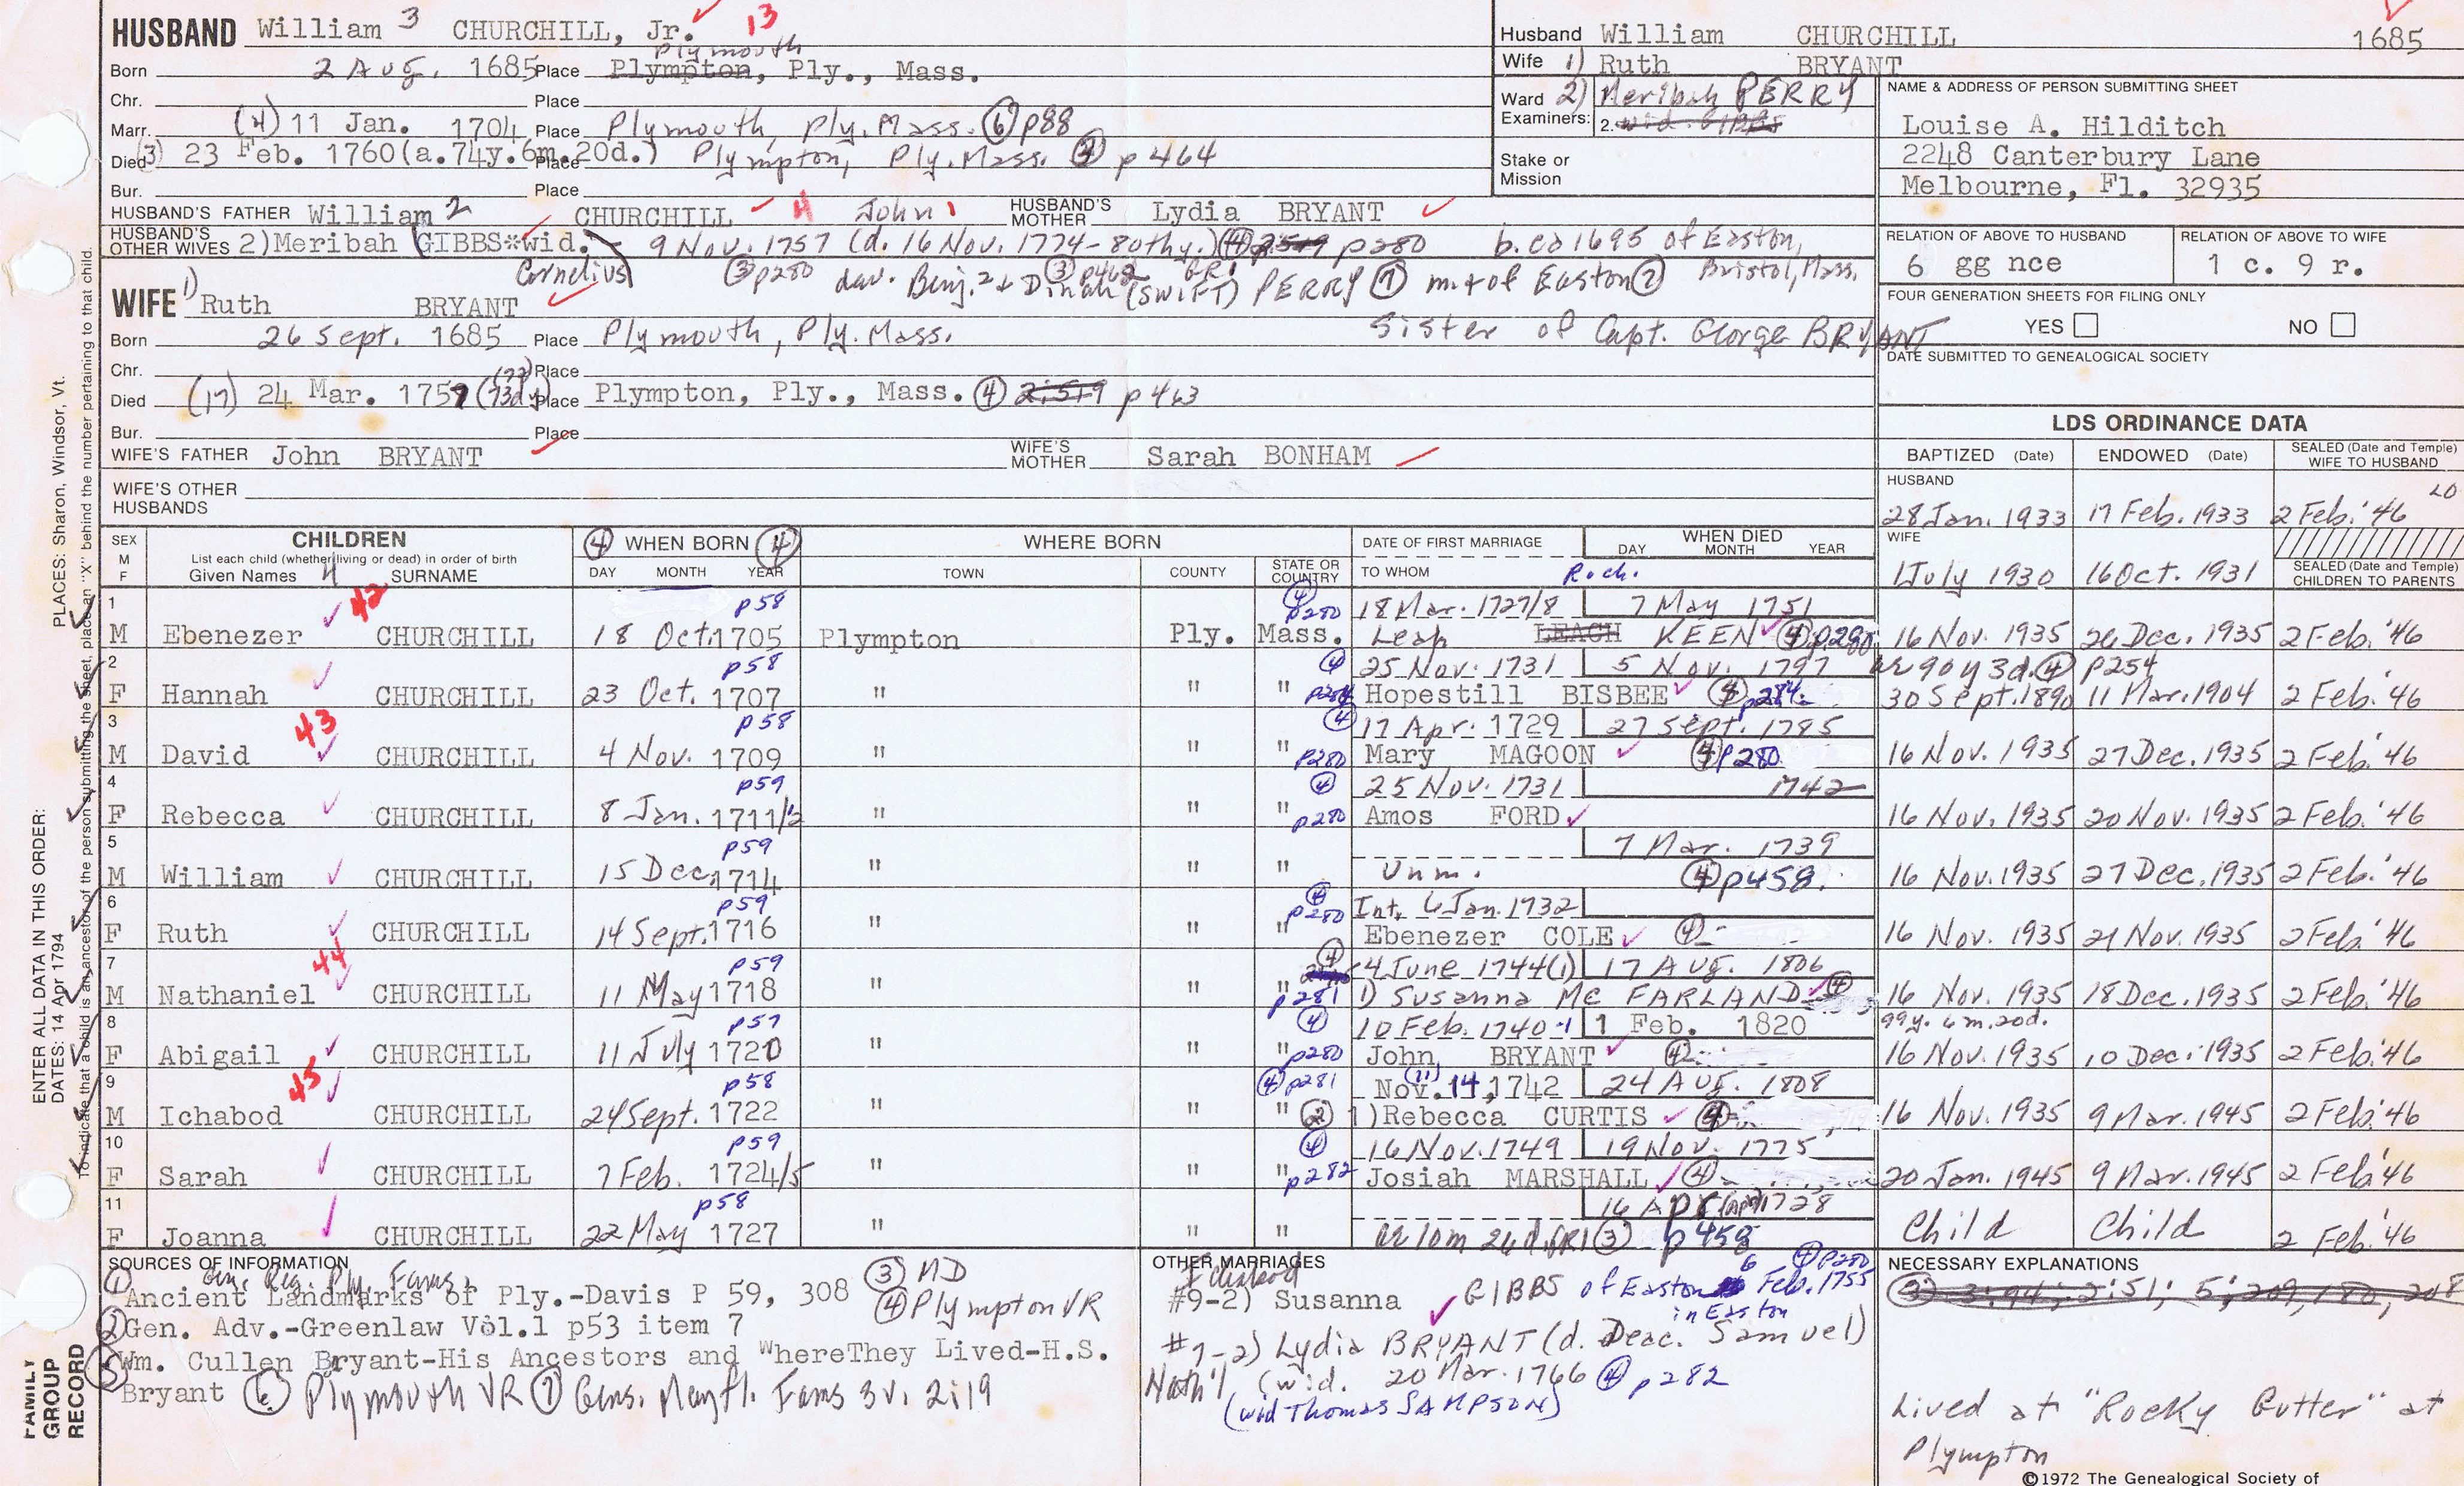 HUSBAND William 3 CHURCHILL, Jr. 13
Plymouth
Born 2 Aug. 1685 Place Plympton, Ply., Mass.
Chr. Place
Marr. (4) 11 Jan. 1704 Place Plymouth, Ply. Mass. (6) p88
Died (3) 23 Feb. 1760 (a.74y.6m.20d.) Place Plympton, Ply. Mass. (4) p464
Bur. Place
HUSBAND'S FATHER William 2 CHURCHILL 4 John 1 HUSBAND'S MOTHER Lydia BRYANT
HUSBAND'S OTHER WIVES 2) Meribah (GIBBS*wid. 9 Nov. 1757 (d. 16 Nov. 1774-80thy.) (4) 2519 p280 b. ca 1695 of Easton,
Cornelius) (3) p280 dau. Benj. 2 + Dinah (SWIFT) PERRY (7) m. + of Easton (2) Bristol, Mass.
(3) p462 GRI
WIFE 1) Ruth BRYANT
Sister of Capt. George BRYANT
Born 26 Sept. 1685 Place Plymouth, Ply. Mass.
Chr. Place
Died (17) 24 Mar. 1757 Place Plympton, Ply., Mass. (4) 2:519 p463
Bur. Place
WIFE'S FATHER John BRYANT WIFE'S MOTHER Sarah BONHAM
WIFE'S OTHER HUSBANDS
Husband William CHURCHILL 1685
Wife 1) Ruth BRYANT
Ward 2) Meribah PERRY
Examiners: 2. wid. GIBBS
Stake or Mission
NAME & ADDRESS OF PERSON SUBMITTING SHEET
Louise A. Hilditch
2248 Canterbury Lane
Melbourne, Fl. 32935
RELATION OF ABOVE TO HUSBAND RELATION OF ABOVE TO WIFE
6 gg nce 1 c. 9 r.
FOUR GENERATION SHEETS FOR FILING ONLY
YES NO
DATE SUBMITTED TO GENEALOGICAL SOCIETY
LDS ORDINANCE DATA
BAPTIZED (Date) ENDOWED (Date) SEALED (Date and Temple) WIFE TO HUSBAND
HUSBAND 20
28 Jan. 1933 17 Feb. 1933 2 Feb. '46
WIFE
1 July 1930 16 Oct. 1931 SEALED (Date and Temple) CHILDREN TO PARENTS
SEX M F CHILDREN (4) WHEN BORN (4) WHERE BORN DATE OF FIRST MARRIAGE WHEN DIED
List each child (whether living or dead) in order of birth
Given Names 4 SURNAME DAY MONTH YEAR TOWN COUNTY STATE OR COUNTRY TO WHOM Roch. DAY MONTH YEAR
1 42 p58 (4) p280 18 Mar. 1727/8 7 May 1751
M Ebenezer CHURCHILL 18 Oct. 1705 Plympton Ply. Mass. Leah LEACH KEEN (4) p280 16 Nov. 1935 26 Dec. 1935 2 Feb. '46
2 p58 (4) 25 Nov. 1731 5 Nov. 1797 ae 90y 3d. (4) p254
F Hannah CHURCHILL 23 Oct. 1707 " " " Hopestill BISBEE 30 Sept. 1890 11 Mar. 1904 2 Feb. '46
3 43 p58 (4) 17 Apr. 1729 27 Sept. 1785
M David CHURCHILL 4 Nov. 1709 " " " p280 Mary MAGOON (4) p280 16 Nov. 1935 27 Dec. 1935 2 Feb. '46
4 p59 (4) 25 Nov. 1731 1742
F Rebecca CHURCHILL 8 Jan. 1711/2 " " " p280 Amos FORD 16 Nov. 1935 20 Nov. 1935 2 Feb. '46
5 p59 7 Mar. 1739
M William CHURCHILL 15 Dec. 1714 " " " Unm. (4) p458. 16 Nov. 1935 27 Dec. 1935 2 Feb. '46
6 p59 (4) p280 Int. 6 Jan. 1732
F Ruth CHURCHILL 14 Sept. 1716 " " " Ebenezer COLE (4) 16 Nov. 1935 21 Nov. 1935 2 Feb. '46
7 44 p59 (4) 4 June 1744 (1) 17 Aug. 1806
M Nathaniel CHURCHILL 11 May 1718 " " " p281 1) Susanna Mc FARLAND (4) 16 Nov. 1935 18 Dec. 1935 2 Feb. '46
8 p57 (4) 10 Feb. 1740-1 1 Feb. 1820 99y. 6m. 20d.
F Abigail CHURCHILL 11 July 1720 " " " p280 John BRYANT (4) 16 Nov. 1935 10 Dec. 1935 2 Feb. '46
9 45 p58 (4) p281 Nov. (11) 14, 1742 24 Aug. 1808
M Ichabod CHURCHILL 24 Sept. 1722 " " " (2) 1) Rebecca CURTIS (4) 16 Nov. 1935 9 Mar. 1945 2 Feb. '46
10 p59 (4) 16 Nov. 1749 19 Nov. 1775
F Sarah CHURCHILL 7 Feb. 1724/5 " " " p282 Josiah MARSHALL (4) 20 Jan. 1945 9 Mar. 1945 2 Feb '46
11 p58 16 Apr 1728
F Joanna CHURCHILL 22 May 1727 " " " ae 10m 26d. GRI (3) p458 Child Child 2 Feb. '46
SOURCES OF INFORMATION
Gen. Reg. Ply. Fams.
(1) Ancient Landmarks of Ply.-Davis P 59, 308 (3) MD
(4) Plympton VR
(2) Gen. Adv.-Greenlaw Vol.1 p53 item 7
(5) Wm. Cullen Bryant-His Ancestors and WhereThey Lived-H.S.
Bryant (6) Plymouth VR (7) Gens. Mayfl. Fams 3v. 2:19
OTHER MARRIAGES
Ichabod (4) p280
#9-2) Susanna GIBBS of Easton 6 Feb. 1755
in Easton
#7-2) Lydia BRYANT (d. Deac. Samuel)
Nath'l (wid. 20 Mar. 1766 (4) p282
(wid Thomas SAMPSON)
NECESSARY EXPLANATIONS
Lived at "Rocky Gutter" at
Plympton
©1972 The Genealogical Society of
ENTER ALL DATA IN THIS ORDER:
DATES: 14 Apr 1794 PLACES: Sharon, Windsor, Vt.
To indicate that a child is an ancestor of the person submitting the sheet, place an "X" behind the number pertaining to that child.
FAMILY
GROUP
RECORD